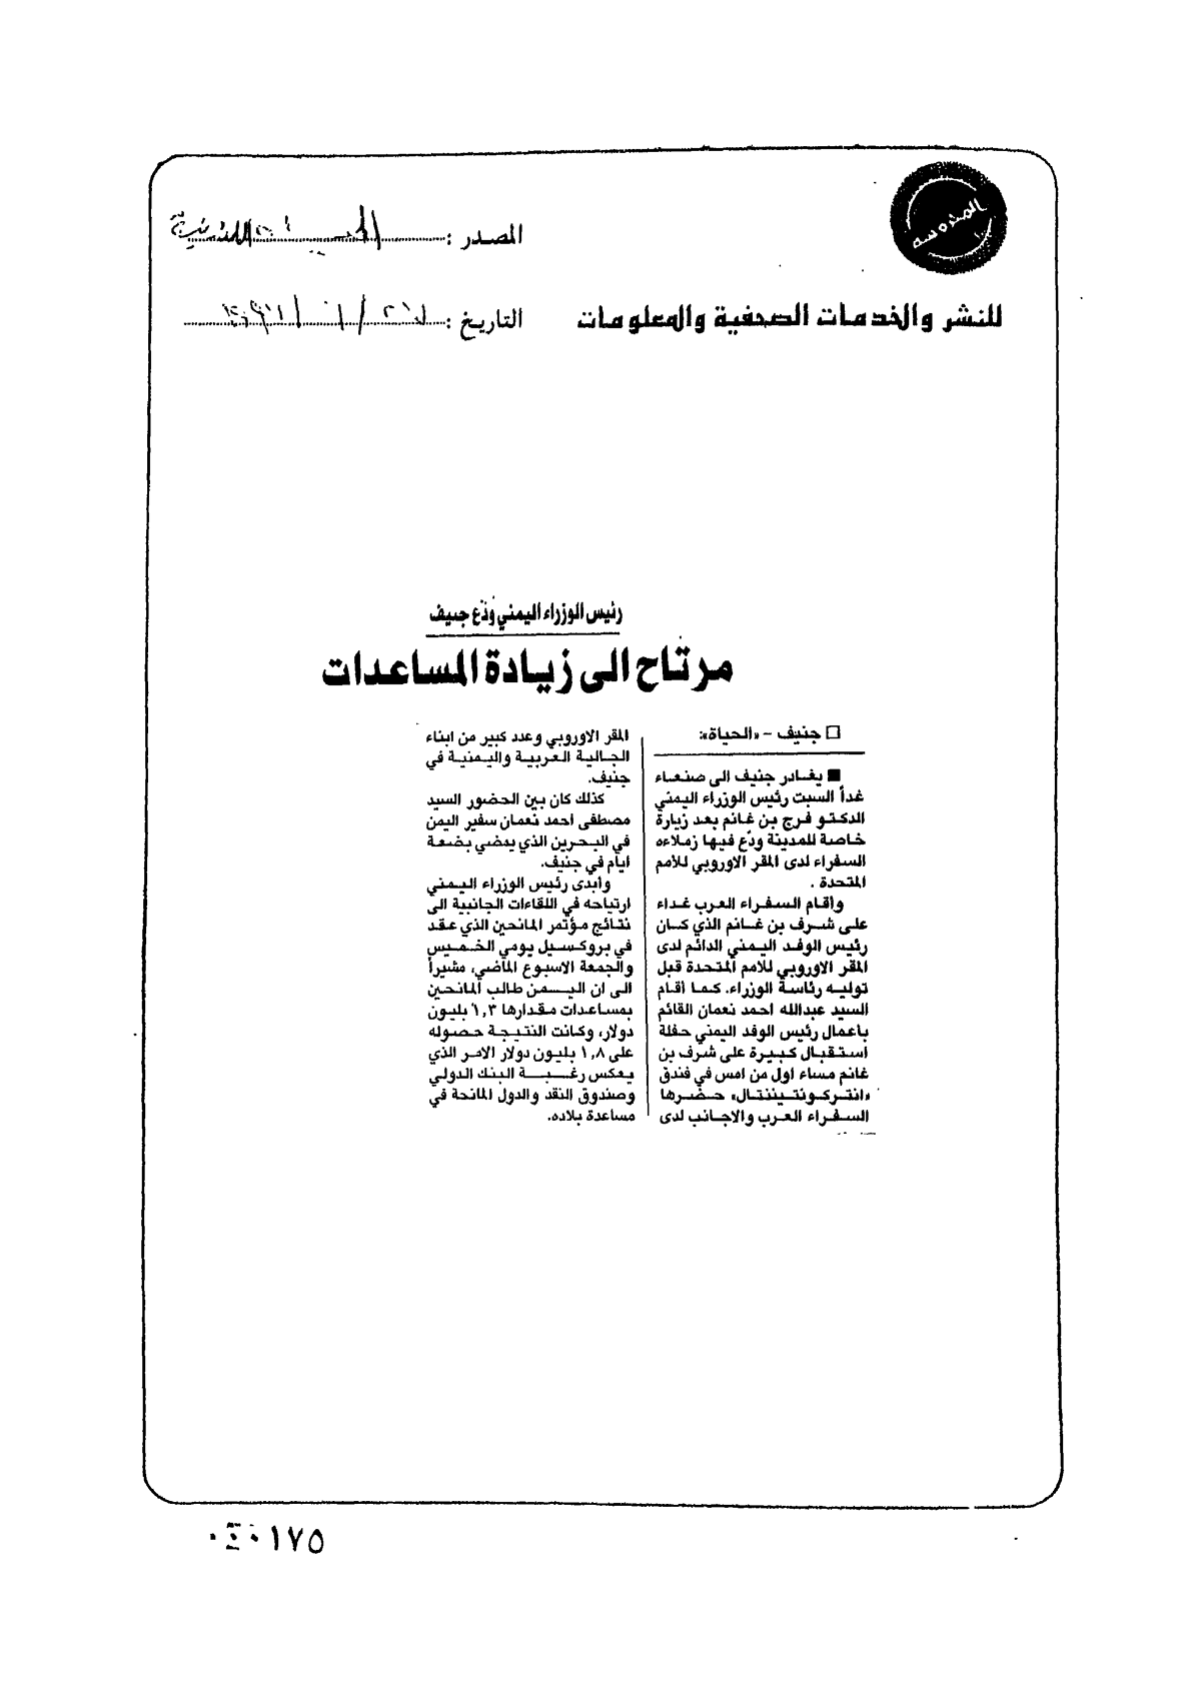 المصدر :
للنشر والخدمات الصحفية والمعلومات
التاريخ :
رئيس الوزراء اليمني ودّع جنيف
مرتاح الى زيادة المساعدات
□ جنيف – «الحياة»:
■ يغادر جنيف الى صنعاء
غداً السبت رئيس الوزراء اليمني
الدكتو فرج بن غانم بعد زيارة
خاصة للمدينة ودّع فيها زملاءه
السفراء لدى المقر الاوروبي للأمم
المتحدة .
وأقام السفراء العرب غداء
على شرف بن غانم الذي كان
رئيس الوفد اليمني الدائم لدى
المقر الاوروبي للأمم المتحدة قبل
توليه رئاسة الوزراء. كما أقام
السيد عبدالله احمد نعمان القائم
باعمال رئيس الوفد اليمني حفلة
استقبال كبيرة على شرف بن
غانم مساء اول من امس في فندق
«انتركونتيننتال» حضرها
السفراء العرب والاجانب لدى
المقر الاوروبي وعدد كبير من ابناء
الجالية العربية واليمنية في
جنيف.
كذلك كان بين الحضور السيد
مصطفى احمد نعمان سفير اليمن
في البحرين الذي يمضي بضعة
ايام في جنيف.
وأبدى رئيس الوزراء اليمني
ارتياحه في اللقاءات الجانبية الى
نتائج مؤتمر المانحين الذي عقد
في بروكسيل يومي الخميس
والجمعة الاسبوع الماضي، مشيراً
الى ان اليمن طالب المانحين
بمساعدات مقدارها ١,٣ بليون
دولار، وكانت النتيجة حصوله
على ١,٨ بليون دولار الامر الذي
يعكس رغبة البنك الدولي
وصندوق النقد والدول المانحة في
مساعدة بلاده.